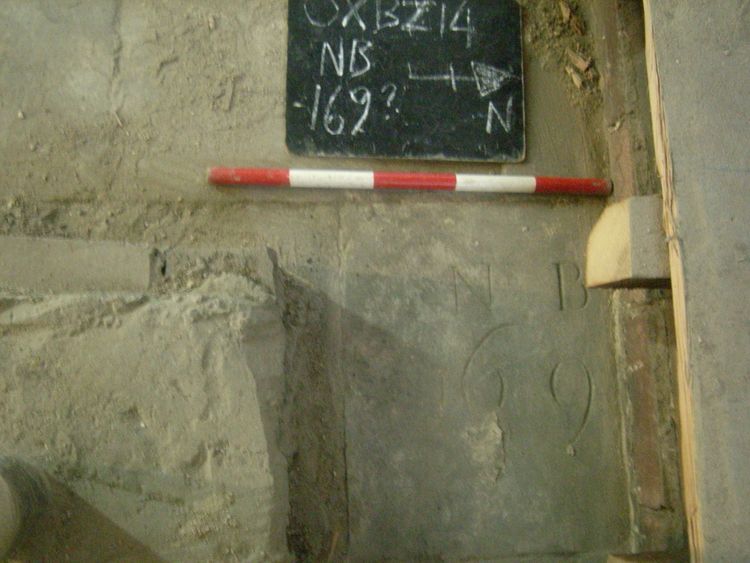 OXBZ14
NB
169?
N
N B
69